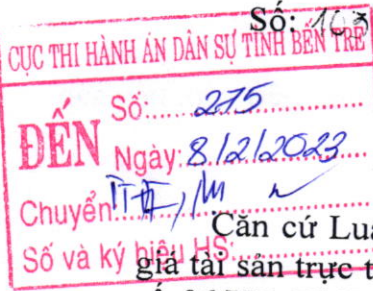 Số: 103
CỤC THI HÀNH ÁN DÂN SỰ TỈNH BẾN TRE
ĐẾN
Số: 275
Ngày: 8/2/2023
Chuyển:
Căn cứ Luậ
Số và ký hiệu HS:
giá tài sản trực t